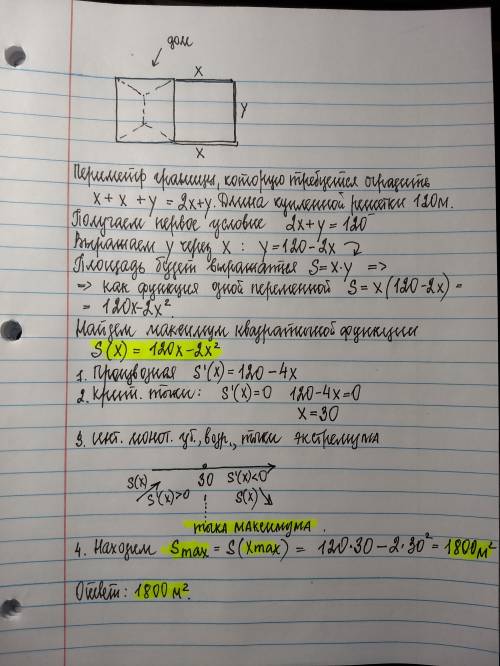 дом
x
y
x
Периметр границы, которую требуется оградить
x + x + y = 2x+y. Длина купленной решетки 120м.
Получаем первое условие 2x+y = 120
Выражаем y через x : y=120-2x
Площадь будет выражатся S=x·y =>
=> как функция одной переменной S=x(120-2x) =
= 120x-2x².
Найдем максимум квадратичной функции
S(x) = 120x-2x²
1. Производная S'(x)=120-4x
2. Крит. точки: S'(x)=0 120-4x=0
x=30
3. инт. монот. уб., возр., точки экстремума
S(x) S'(x)>0 30 S'(x)<0 S(x)
точка максимума.
4. Находим Smax = S(xmax) = 120·30-2·30²= 1800м²
Ответ: 1800м².